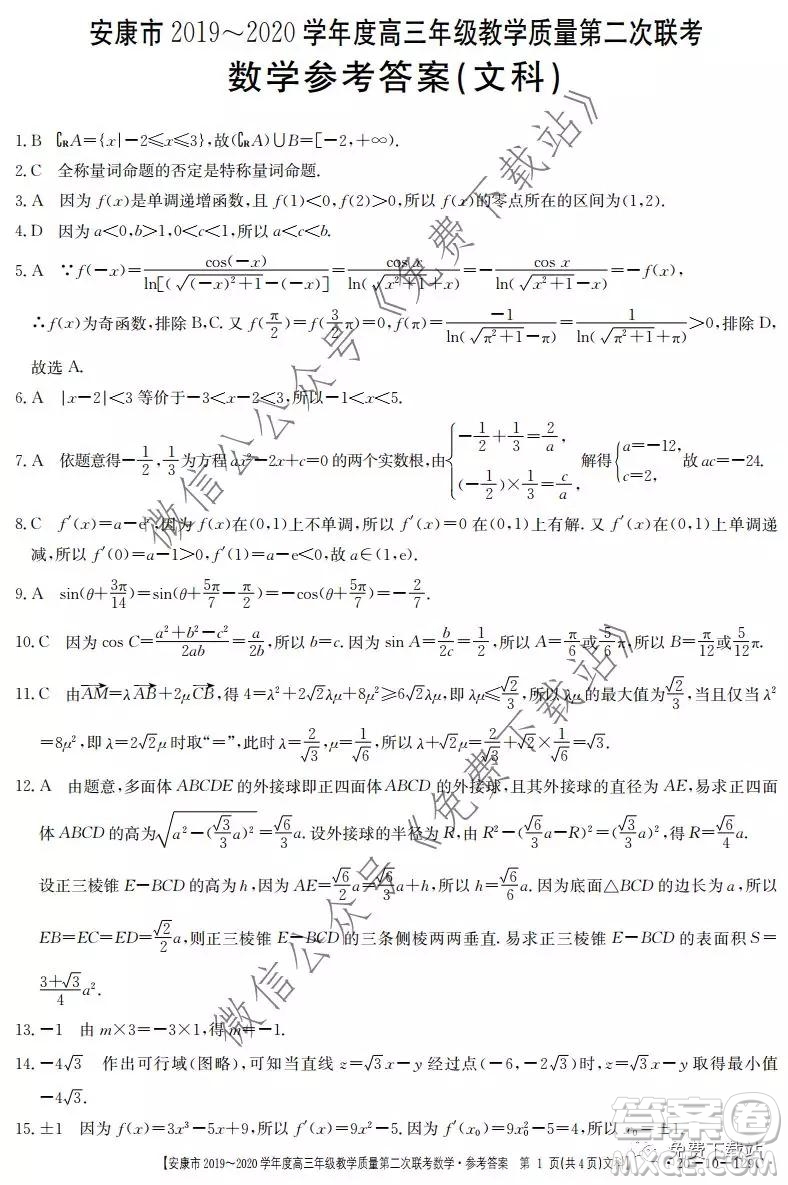 安康市 2019～2020 学年度高三年级教学质量第二次联考
数学参考答案(文科)
1. B ∁RA={x|-2≤x≤3},故(∁RA)∪B=[-2,+∞).
2. C 全称量词命题的否定是特称量词命题.
3. A 因为 f(x)是单调递增函数,且 f(1)<0,f(2)>0,所以 f(x)的零点所在的区间为(1,2).
4. D 因为 a<0,b>1,0<c<1,所以 a<c<b.
5. A ∵f(-x)=cos(-x)/ln[(√((-x)²+1)-(-x)]=cos x/ln(√(x²+1)+x)=-cos x/ln(√(x²+1)-x)=-f(x),
∴f(x)为奇函数,排除 B,C. 又 f(π/2)=f(3/2π)=0,f(π)=-1/ln(√(π²+1)-π)=1/ln(√(π²+1)+π)>0,排除 D,
故选 A.
6. A |x-2|<3 等价于-3<x-2<3,所以-1<x<5.
7. A 依题意得-1/2,1/3为方程 ax²-2x+c=0 的两个实数根,由{-1/2+1/3=2/a, (-1/2)×1/3=c/a, 解得{a=-12, c=2, 故 ac=-24.
8. C f′(x)=a-eˣ,因为 f(x)在(0,1)上不单调,所以 f′(x)=0 在(0,1)上有解. 又 f′(x)在(0,1)上单调递
减,所以 f′(0)=a-1>0,f′(1)=a-e<0,故 a∈(1,e).
9. A sin(θ+3π/14)=sin(θ+5π/7-π/2)=-cos(θ+5π/7)=-2/7.
10. C 因为 cos C=(a²+b²-c²)/2ab=a/2b,所以 b=c. 因为 sin A=b/2c=1/2,所以 A=π/6或5/6π,所以 B=π/12或5/12π.
11. C 由AM=λAB+2μCB,得 4=λ²+2√2λμ+8μ²≥6√2λμ,即 λμ≤√2/3,所以 λμ 的最大值为√2/3,当且仅当 λ²
=8μ²,即 λ=2√2μ 时取“=”,此时 λ=2/√3,μ=1/√6,所以 λ+√2μ=2/√3+√2×1/√6=√3.
12. A 由题意,多面体 ABCDE 的外接球即正四面体 ABCD 的外接球,且其外接球的直径为 AE,易求正四面
体 ABCD 的高为√(a²-(√3/3a)²)=√6/3a. 设外接球的半径为 R,由 R²-(√6/3a-R)²=(√3/3a)²,得 R=√6/4a.
设正三棱锥 E-BCD 的高为 h,因为 AE=√6/2a=√6/3a+h,所以 h=√6/6a. 因为底面△BCD 的边长为 a,所以
EB=EC=ED=√2/2a,则正三棱锥 E-BCD 的三条侧棱两两垂直. 易求正三棱锥 E-BCD 的表面积 S=
(3+√3)/4a².
13. -1 由 m×3=-3×1,得 m=-1.
14. -4√3 作出可行域(图略),可知当直线 z=√3x-y 经过点(-6,-2√3)时,z=√3x-y 取得最小值
-4√3.
15. ±1 因为 f(x)=3x³-5x+9,所以 f′(x)=9x²-5. 因为 f′(x₀)=9x₀²-5=4,所以 x₀=±1.
【安康市 2019～2020 学年度高三年级教学质量第二次联考数学·参考答案 第 1 页(共 4 页)文科】 ·20-10-129C·
微信公众号《免费下载站》
微信公众号《免费下载站》
免费下载站
答案圈